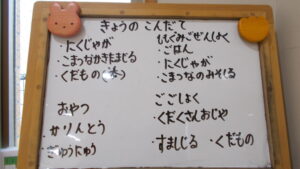 きょうの こんだて
・たくじゃが
・こまつなかきたまじる
・くだもの
おやつ
・かりんとう
・ぎゅうにゅう
・ごはん
・たくじゃが
・こまつなのみそしる
ごごしょく
・くだくさんおじや
・すましじる ・くだもの